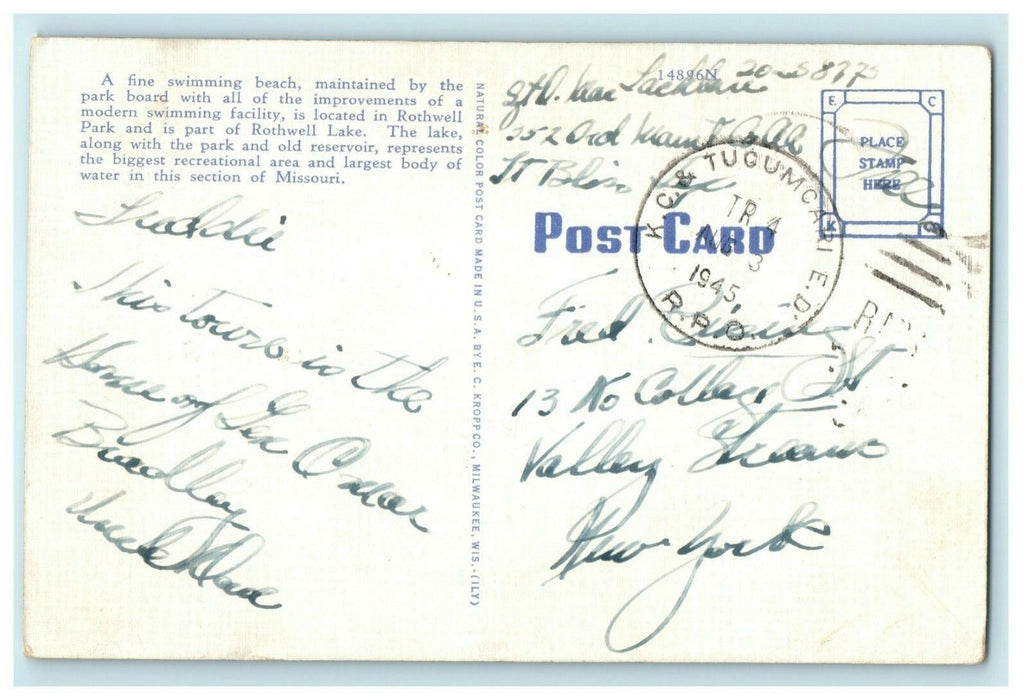 A fine swimming beach, maintained by the
park board with all of the improvements of a
modern swimming facility, is located in Rothwell
Park and is part of Rothwell Lake. The lake,
along with the park and old reservoir, represents
the biggest recreational area and largest body of
water in this section of Missouri.
This Town is the
Home of Gen Omar
Bradley
Uncle Dave
NATURAL COLOR POST CARD MADE IN U.S.A. BY E. C. KROPP CO., MILWAUKEE, WIS.-(ILY)
14896N
Mac Lachlan
252 Ord Maint Co AA
Ft Bliss
Free
E C
PLACE
STAMP
HERE
K
POST CARD
K.C. & TUCUMCARI E.D.
TR 4
AUG 3
1945
R.P.O.
Fred
13 No Cottage St
Valley Stream
New York